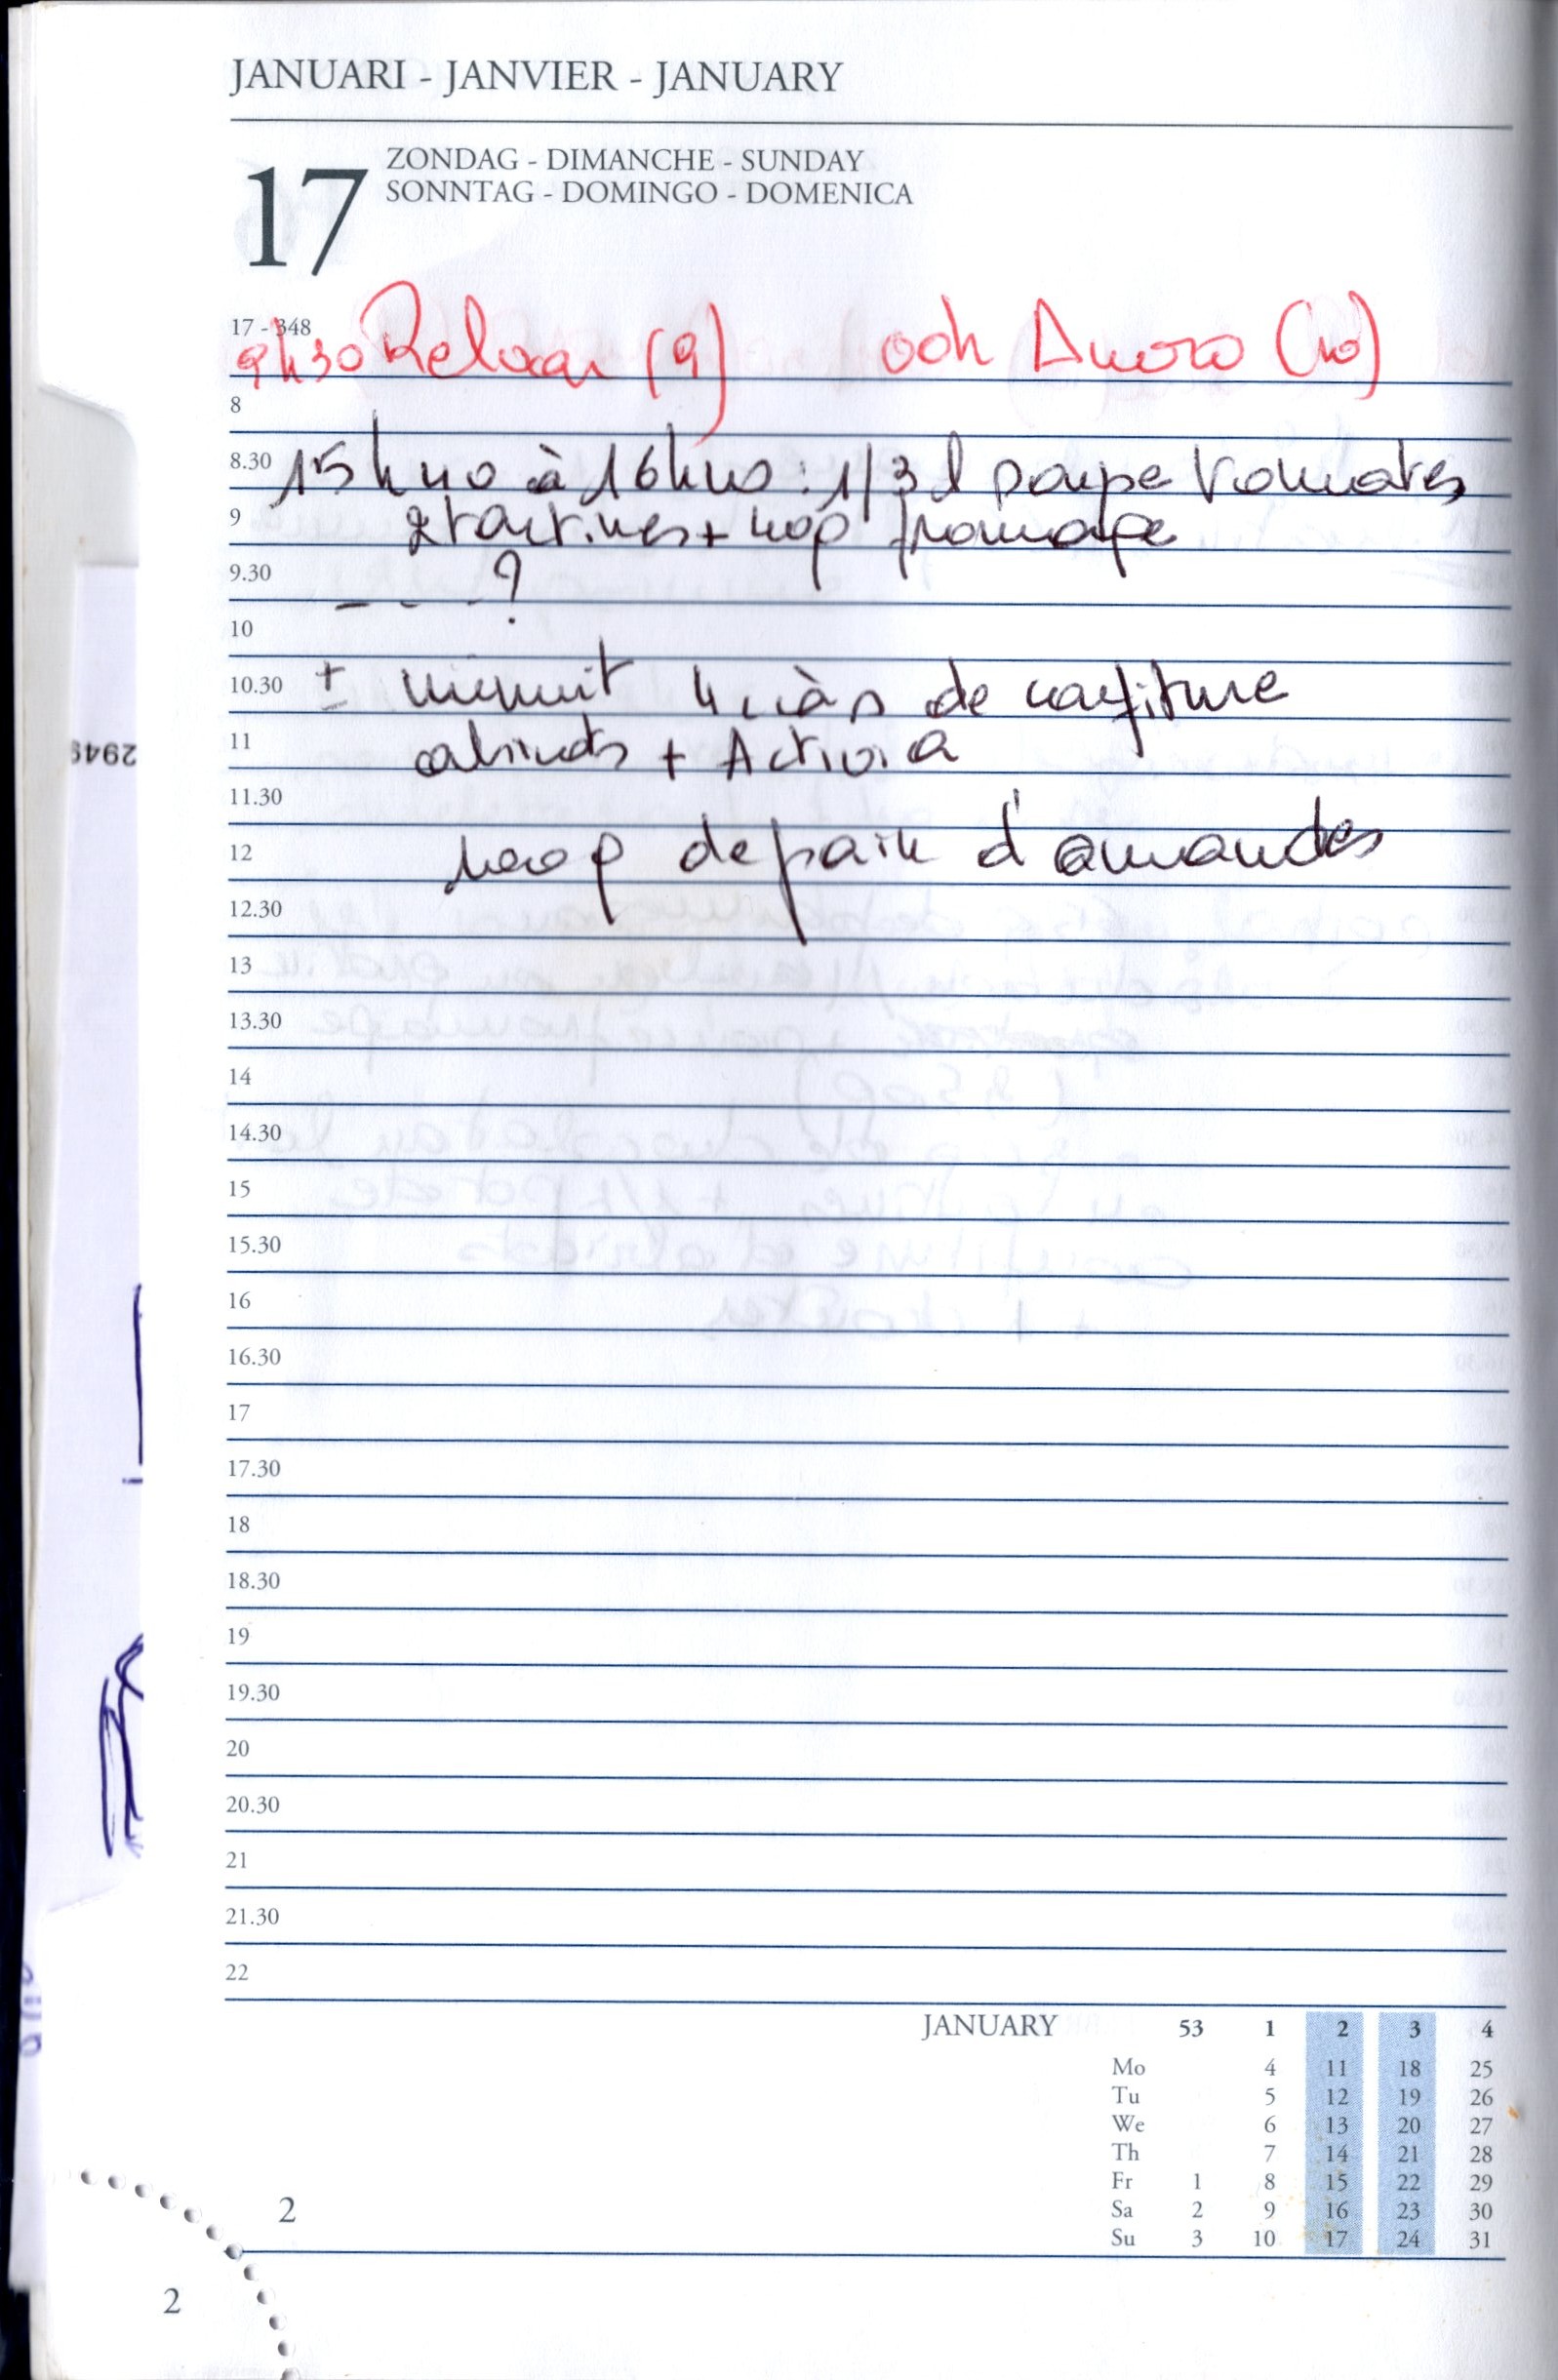 JANUARI - JANVIER - JANUARY
17
ZONDAG - DIMANCHE - SUNDAY
SONNTAG - DOMINGO - DOMENICA
17 - 348
9h30 Relaxar (9) 00h Amoro (10)
8
8.30 15h40 à 16h40 : 1/3 l soupe tomates
9 2 tartines + 40g fromage
9.30 _ _ _ _ ?
10
10.30 ± minuit 4 c à s de confiture
11 abricots + Activia
11.30
12 100g de pain d'amandes
12.30
13
13.30
14
14.30
15
15.30
16
16.30
17
17.30
18
18.30
19
19.30
20
20.30
21
21.30
22
JANUARY 53 1 2 3 4
Mo 4 11 18 25
Tu 5 12 19 26
We 6 13 20 27
Th 7 14 21 28
Fr 1 8 15 22 29
Sa 2 9 16 23 30
Su 3 10 17 24 31
2
2
2949